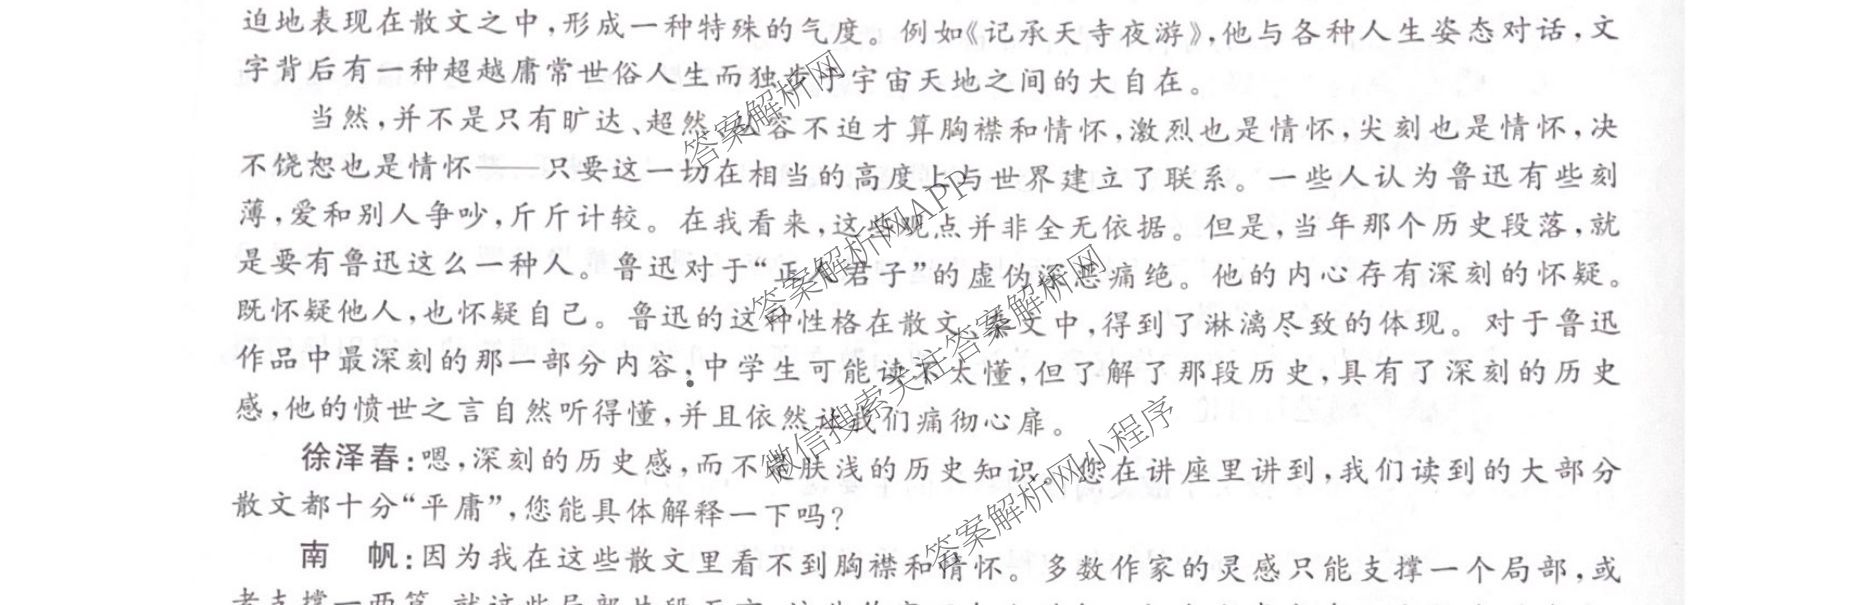 迫地表现在散文之中,形成一种特殊的气度。例如《记承天寺夜游》,他与各种人生姿态对话,文
字背后有一种超越庸常世俗人生而独步于宇宙天地之间的大自在。
当然,并不是只有旷达、超然、从容不迫才算胸襟和情怀,激烈也是情怀,尖刻也是情怀,决
不饶恕也是情怀——只要这一切在相当的高度上与世界建立了联系。一些人认为鲁迅有些刻
薄,爱和别人争吵,斤斤计较。在我看来,这些观点并非全无依据。但是,当年那个历史段落,就
是要有鲁迅这么一种人。鲁迅对于“正人君子”的虚伪深恶痛绝。他的内心存有深刻的怀疑。
既怀疑他人,也怀疑自己。鲁迅的这种性格在散文、杂文中,得到了淋漓尽致的体现。对于鲁迅
作品中最深刻的那一部分内容,中学生可能读不太懂,但了解了那段历史,具有了深刻的历史
感,他的愤世之言自然听得懂,并且依然让我们痛彻心扉。
徐泽春:嗯,深刻的历史感,而不是肤浅的历史知识。您在讲座里讲到,我们读到的大部分
散文都十分“平庸”,您能具体解释一下吗?
南 帆:因为我在这些散文里看不到胸襟和情怀。多数作家的灵感只能支撑一个局部,或
答案解析网
答案解析网APP
微信搜索关注答案解析网
答案解析网小程序